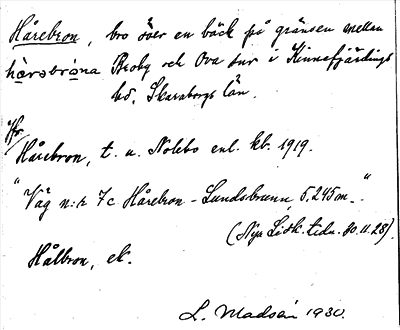 Hårebron, bro över en bäck på gränsen mellan
hårəbróna Broby och Ova snr i Kinnefjärdings
hd, Skaraborgs län.
Jfr
Hårebron, t. u. Nolebo enl. kb. 1919.
"Väg n:r 7c Hårebron - Lundsbrunn, 5,245 m."
(Nya Lidk. tidn. 30.11.28).
Hålbron, ek.
L. Madsén 1930.